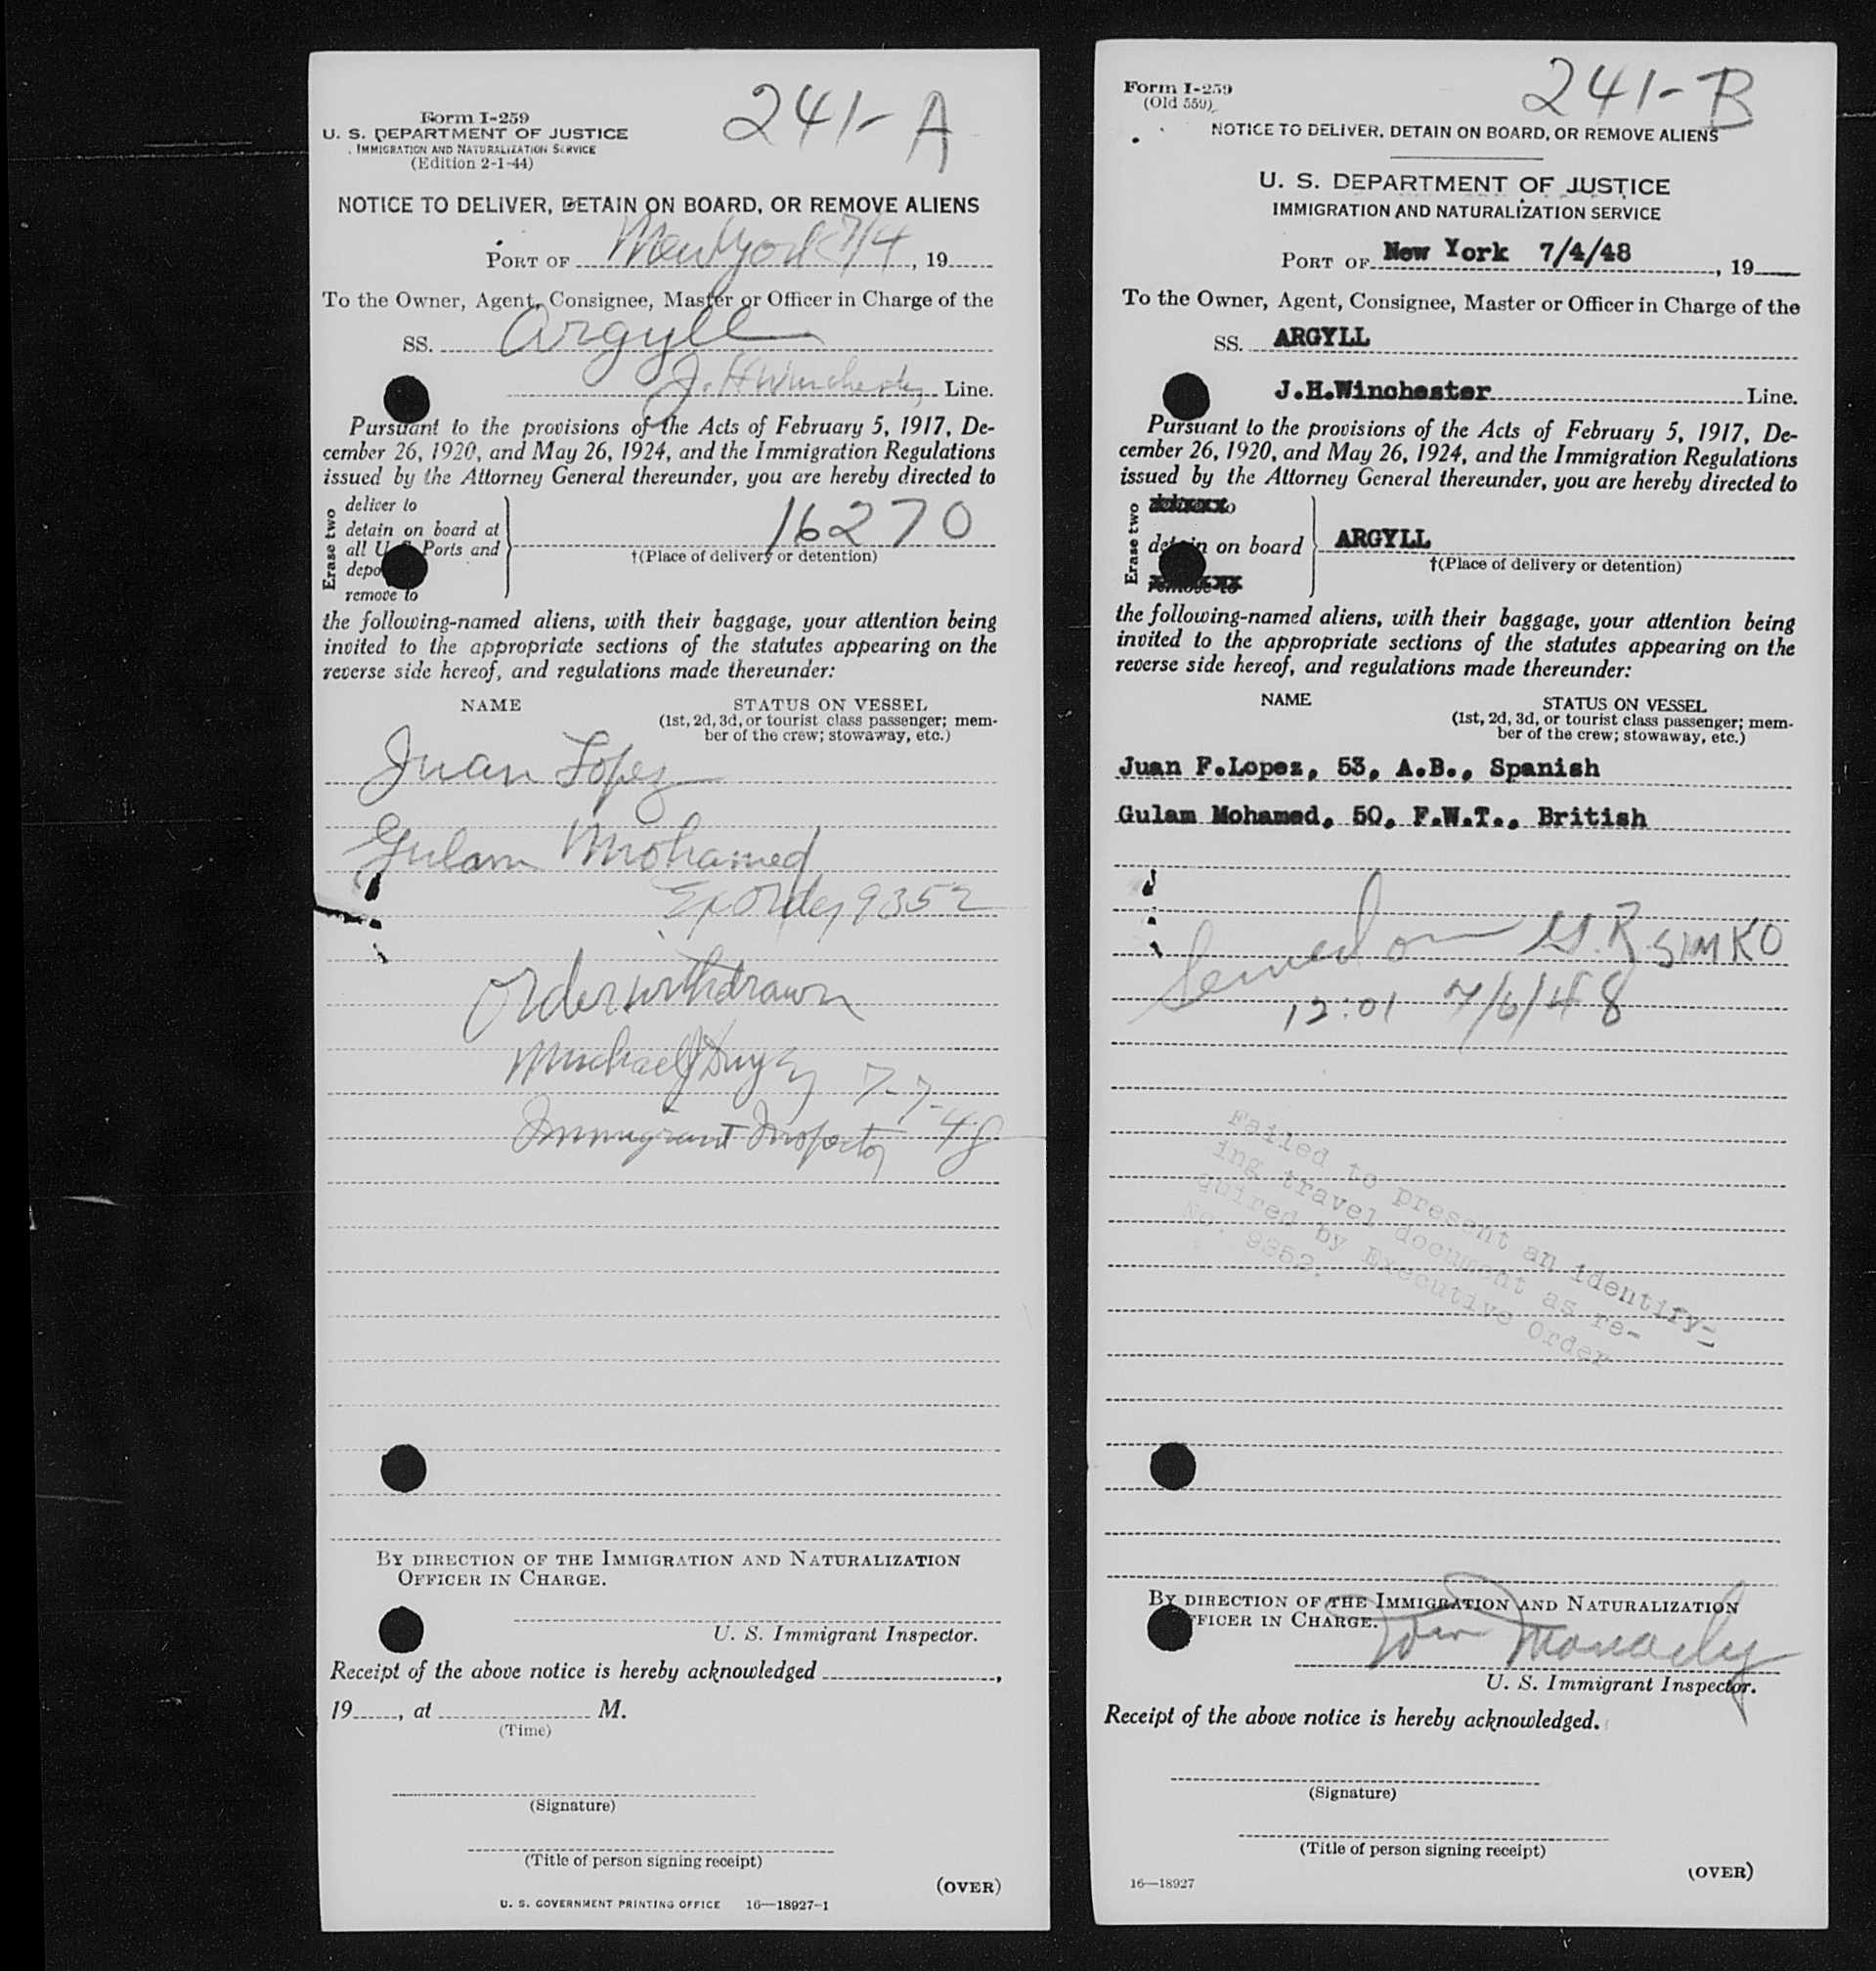 241-A
Form I-259
U. S. DEPARTMENT OF JUSTICE
IMMIGRATION AND NATURALIZATION SERVICE
(Edition 2-1-44)
NOTICE TO DELIVER, DETAIN ON BOARD, OR REMOVE ALIENS
PORT OF New York 7/4, 19
To the Owner, Agent, Consignee, Master or Officer in Charge of the
SS. Argyll
J. H Winchester Line.
Pursuant to the provisions of the Acts of February 5, 1917, De-
cember 26, 1920, and May 26, 1924, and the Immigration Regulations
issued by the Attorney General thereunder, you are hereby directed to
Erase two
deliver to
detain on board at
all U. S. Ports and
depo
remove to
16270
†(Place of delivery or detention)
the following-named aliens, with their baggage, your attention being
invited to the appropriate sections of the statutes appearing on the
reverse side hereof, and regulations made thereunder:
NAME STATUS ON VESSEL
(1st, 2d, 3d, or tourist class passenger; mem-
ber of the crew; stowaway, etc.)
Juan Lopez
Gulam Mohamed
Ex Order 9352
Order withdrawn
Michael J 7-7-48
Immigrant Inspector
BY DIRECTION OF THE IMMIGRATION AND NATURALIZATION
OFFICER IN CHARGE.
U. S. Immigrant Inspector.
Receipt of the above notice is hereby acknowledged ,
19 , at M.
(Time)
(Signature)
(Title of person signing receipt)
(OVER)
U. S. GOVERNMENT PRINTING OFFICE 16—18927-1
241-B
Form I-259
(Old 559)
NOTICE TO DELIVER, DETAIN ON BOARD, OR REMOVE ALIENS
U. S. DEPARTMENT OF JUSTICE
IMMIGRATION AND NATURALIZATION SERVICE
PORT OF New York 7/4/48, 19
To the Owner, Agent, Consignee, Master or Officer in Charge of the
SS. ARGYLL
J.H.Winchester Line.
Pursuant to the provisions of the Acts of February 5, 1917, De-
cember 26, 1920, and May 26, 1924, and the Immigration Regulations
issued by the Attorney General thereunder, you are hereby directed to
Erase two
detain on board
remove to
ARGYLL
†(Place of delivery or detention)
the following-named aliens, with their baggage, your attention being
invited to the appropriate sections of the statutes appearing on the
reverse side hereof, and regulations made thereunder:
NAME STATUS ON VESSEL
(1st, 2d, 3d, or tourist class passenger; mem-
ber of the crew; stowaway, etc.)
Juan F.Lopez, 53, A.B., Spanish
Gulam Mohamed, 50, F.W.T., British
Served on G.R SIMKO
12:01 7/6/48
Failed to present an identify-
ing travel document as re-
quired by Executive Order
No. 9352.
BY DIRECTION OF THE IMMIGRATION AND NATURALIZATION
OFFICER IN CHARGE.
U. S. Immigrant Inspector.
Receipt of the above notice is hereby acknowledged.
(Signature)
(Title of person signing receipt)
(OVER)
16—18927